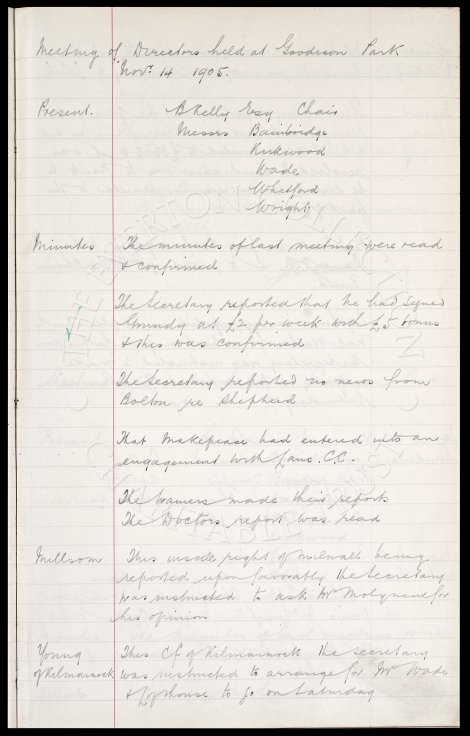 Meeting of Directors held at Goodison Park
Novr 14 1905.
Present. B Kelly Esq Chair
Messrs Bainbridge
Kirkwood
Wade
Whitford
Wright.
Minutes The minutes of last meeting were read
& confirmed
The Secretary reported that he had signed
Grundy at £2 per week with £5 bonus
& this was confirmed
The Secretary reported no news from
Bolton re Shepherd
That Makepeace had entered into an
engagement with Lanc. C.C.
The trainers made their reports
The Doctors report was read
Millsom This inside right of Millwall being
reported upon favorably the Secretary
was instructed to ask Mr Molyneux for
his opinion
Young This C.f of Kilmarnock the Secretary
of Kilmarnock was instructed to arrange for Mr Wade
& to go on Saturday
THE EVERTON COLLECTION
CHARITABLE